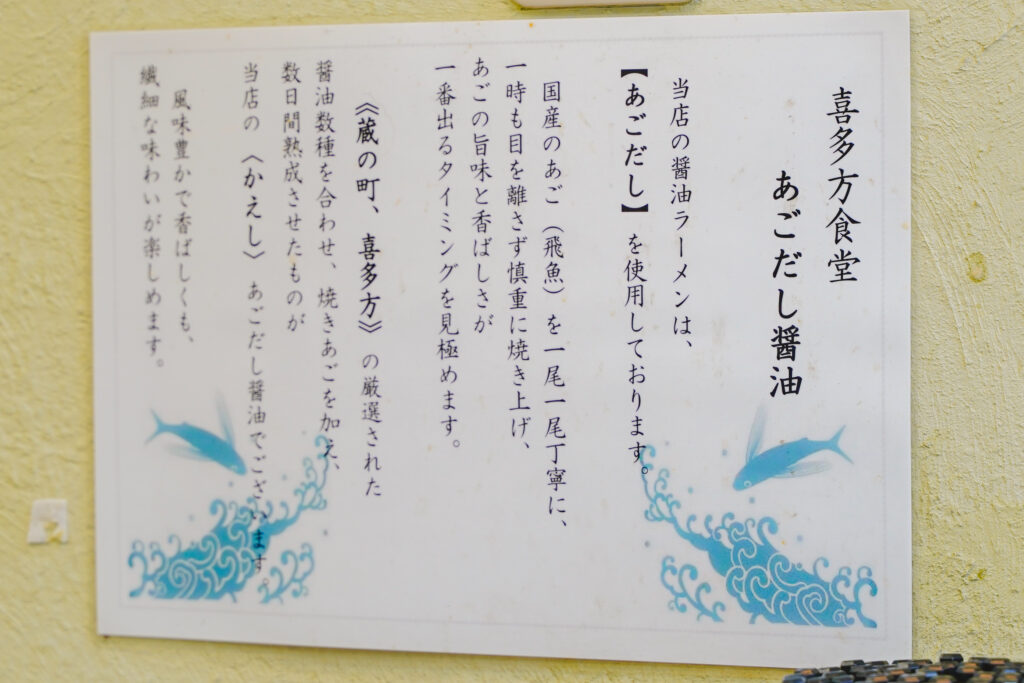 喜多方食堂
あごだし醤油
当店の醤油ラーメンは、
【あごだし】を使用しております。
国産のあご（飛魚）を一尾一尾丁寧に、
一時も目を離さず慎重に焼き上げ、
あごの旨味と香ばしさが
一番出るタイミングを見極めます。
《蔵の町、喜多方》の厳選された
醤油数種を合わせ、焼きあごを加え、
数日間熟成させたものが
当店の〈かえし〉あごだし醤油でございます。
風味豊かで香ばしくも、
繊細な味わいが楽しめます。